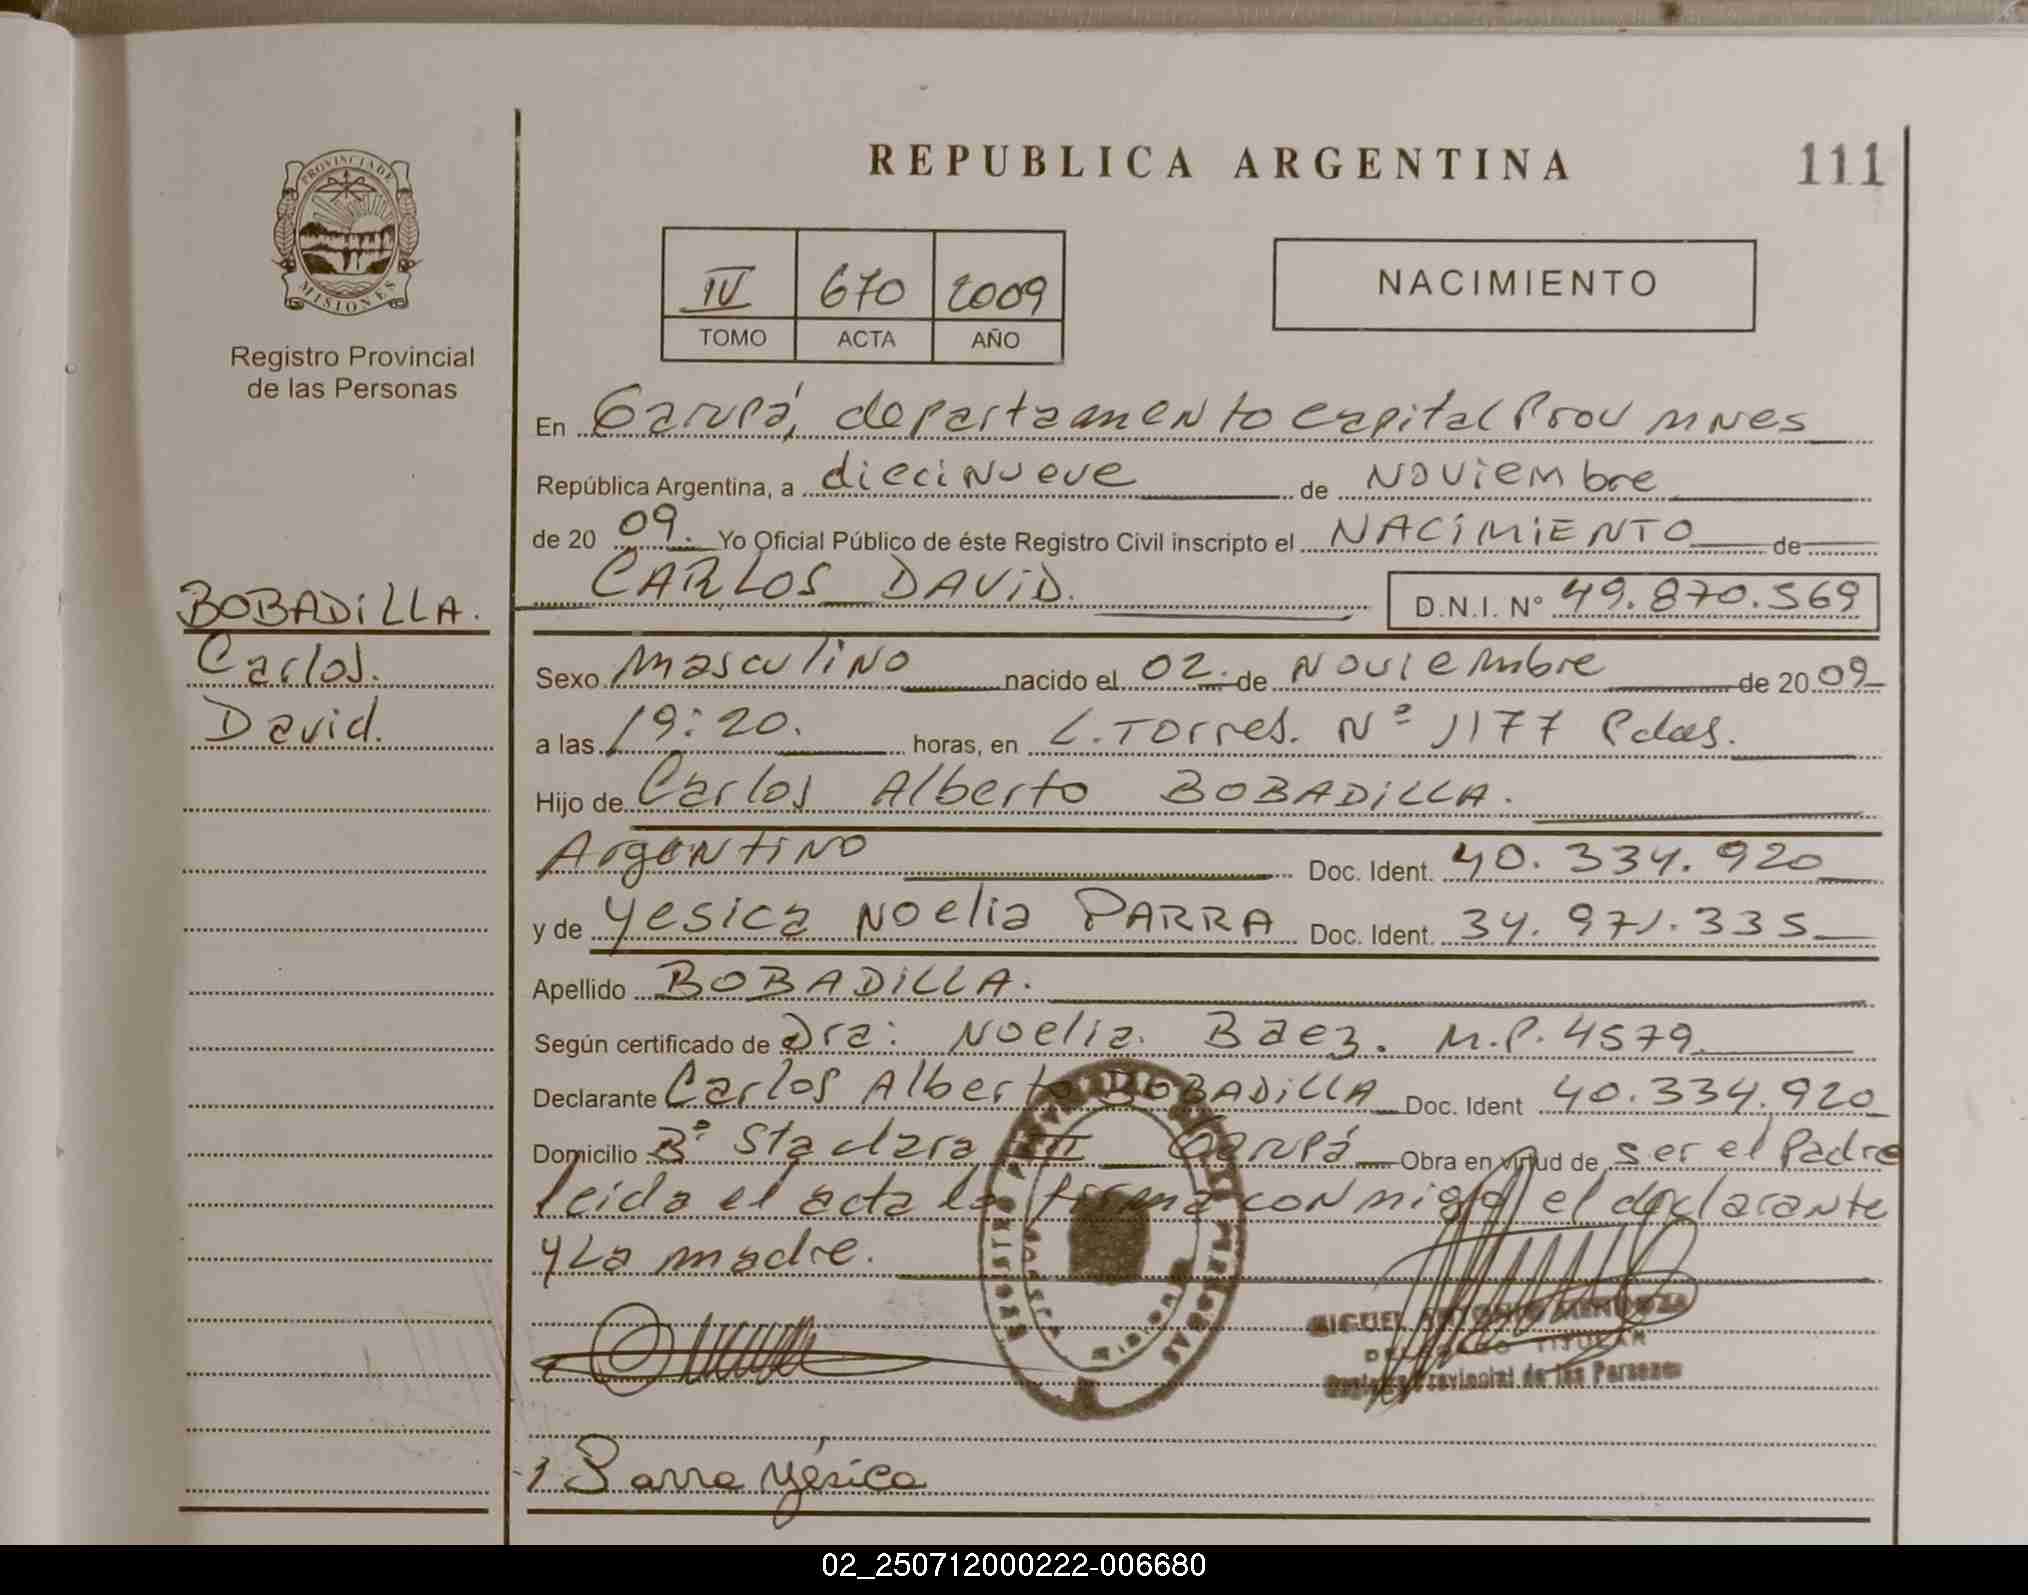 PROVINCIA DE
MISIONES
Registro Provincial
de las Personas
BOBADILLA.
Carlos.
David.
REPUBLICA ARGENTINA
111
IV 670 2009
TOMO ACTA AÑO
NACIMIENTO
En Garupá, departamento capital Prov Mnes
República Argentina, a diecinueve de Noviembre
de 20 09. Yo Oficial Público de éste Registro Civil inscripto el NACIMIENTO de
CARLOS DAVID. D.N.I. N° 49.870.569
Sexo Masculino nacido el 02. de Noviembre de 20 09
a las 19:20. horas, en L. Torres. Nº 1177 Pdas.
Hijo de Carlos Alberto BOBADILLA.
Argentino Doc. Ident. 40.334.920
y de Yesica Noelia PARRA Doc. Ident. 34.971.335
Apellido BOBADILLA.
Según certificado de Dra: Noelia Baez. M.P. 4579
Declarante Carlos Alberto BOBADILLA Doc. Ident 40.334.920
Domicilio Bº Sta clara III Garupá Obra en virtud de ser el Padre
leida el acta la firma conmigo el declarante
y La madre.
MIGUEL ANTONIO MENDOZA
DELEGADO TITULAR
Registro Provincial de las Personas
Parra Yésica
02_250712000222-006680